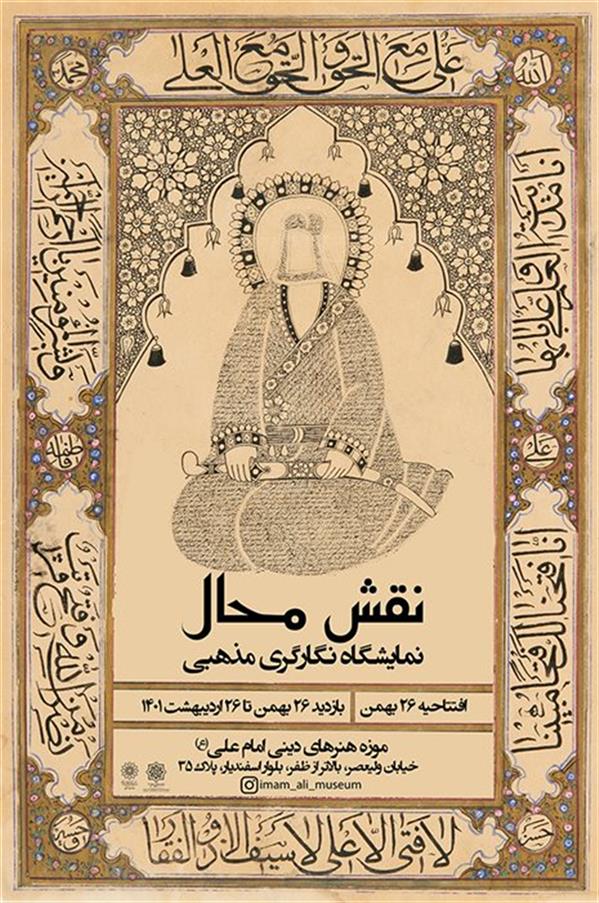 الله
علی مع الحق و الحق مع العلی
محمد
انا مدینة العلم و علی بابها
علی
انا فتحنا لک فتحا مبینا
نصر من الله و فتح قریب
فاطمه
و بشر المؤمنین یا ارحم الراحمین
نقش محال
نمایشگاه نگارگری مذهبی
افتتاحیه ۲۶ بهمن | بازدید ۲۶ بهمن تا ۲۶ اردیبهشت ۱۴۰۱
موزه هنرهای دینی امام علی (ع)
خیابان ولیعصر، بالاتر از ظفر، بلوار اسفندیار، پلاک ۳۵
imam_ali_museum
حسن
لا فتی الا علی لا سیف الا ذوالفقار
حسین